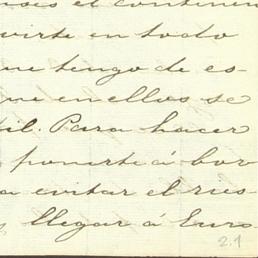 nses el continen
virte en todo
ue tengo de es-
que en ellos se
til. Para hacer
ponerte á bor
a evitar el ries-
llegar á Euro-
2.1